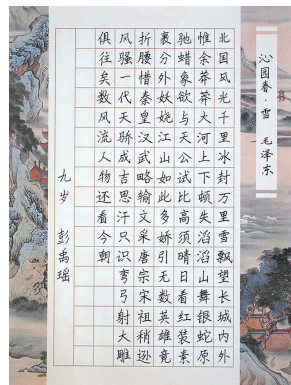 沁园春·雪 毛泽东
北国风光千里冰封万里雪飘望长城内外
惟余莽莽大河上下顿失滔滔山舞银蛇原
驰蜡象欲与天公试比高须晴日看红装素
裹分外妖娆江山如此多娇引无数英雄竞
折腰惜秦皇汉武略输文采唐宗宋祖稍逊
风骚一代天骄成吉思汗只识弯弓射大雕
俱往矣数风流人物还看今朝
九岁 彭禹瑶